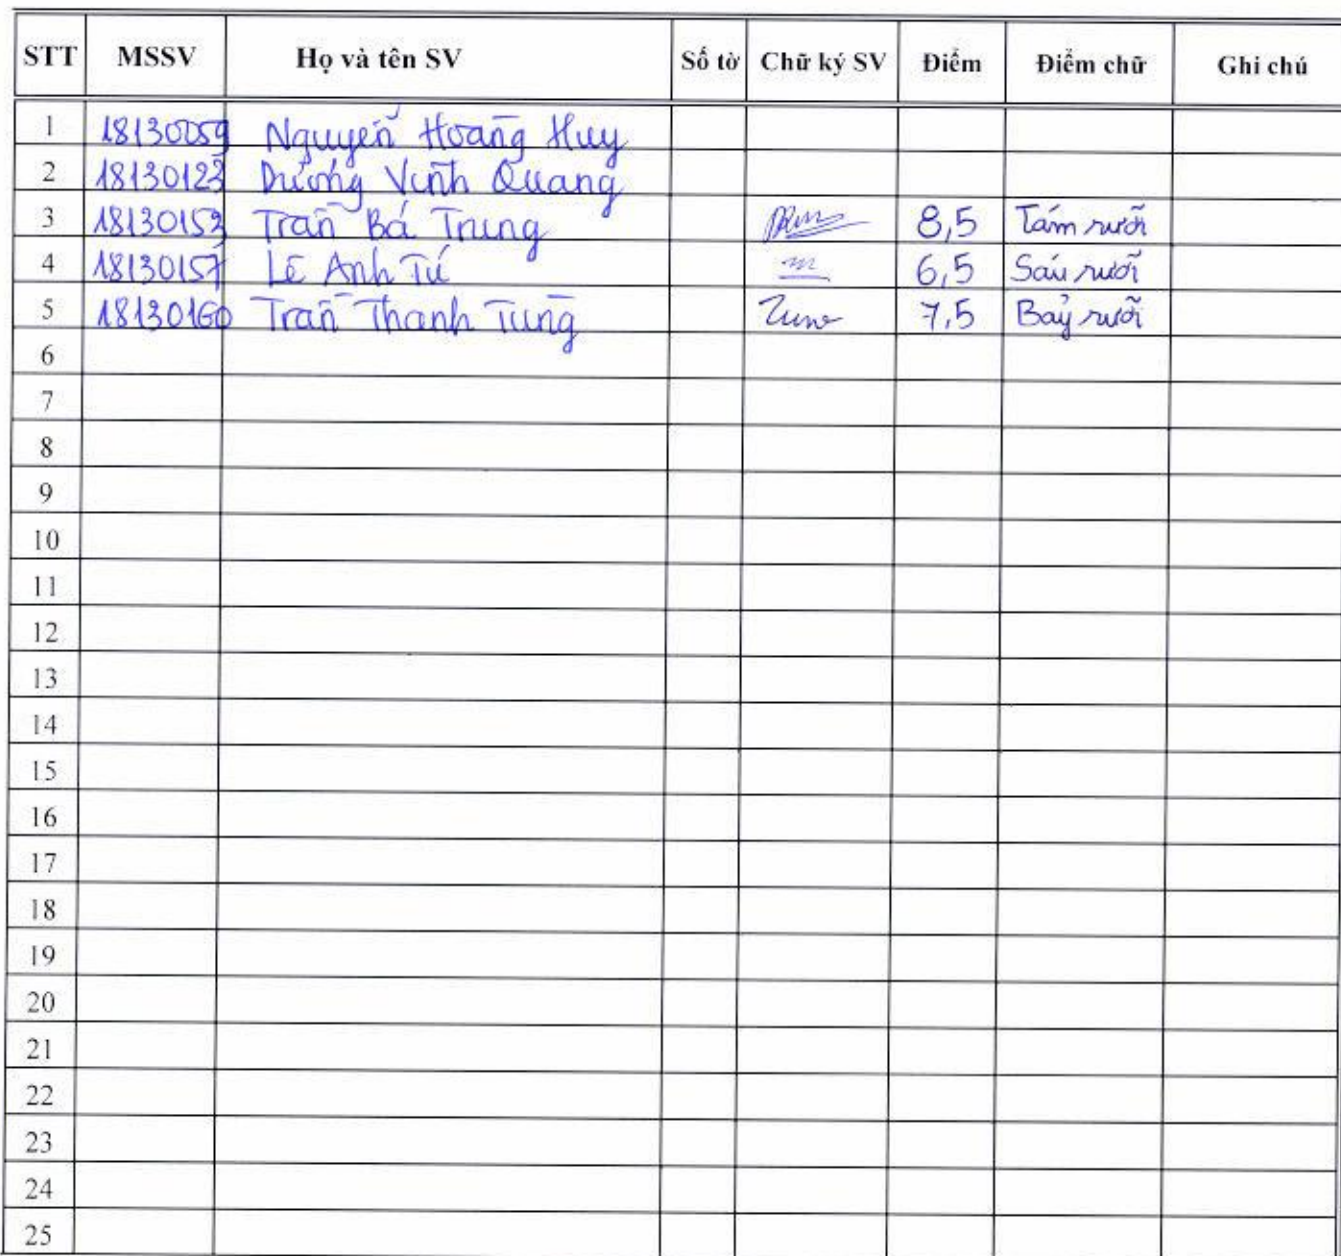 STT MSSV Họ và tên SV Số tờ Chữ ký SV Điểm Điểm chữ Ghi chú
1 18130059 Nguyễn Hoàng Huy
2 18130123 Dương Vĩnh Quang
3 18130153 Trần Bá Trung 8,5 Tám rưỡi
4 18130157 Lê Anh Tú 6,5 Sáu rưỡi
5 18130160 Trần Thanh Tùng 7,5 Bảy rưỡi
6
7
8
9
10
11
12
13
14
15
16
17
18
19
20
21
22
23
24
25